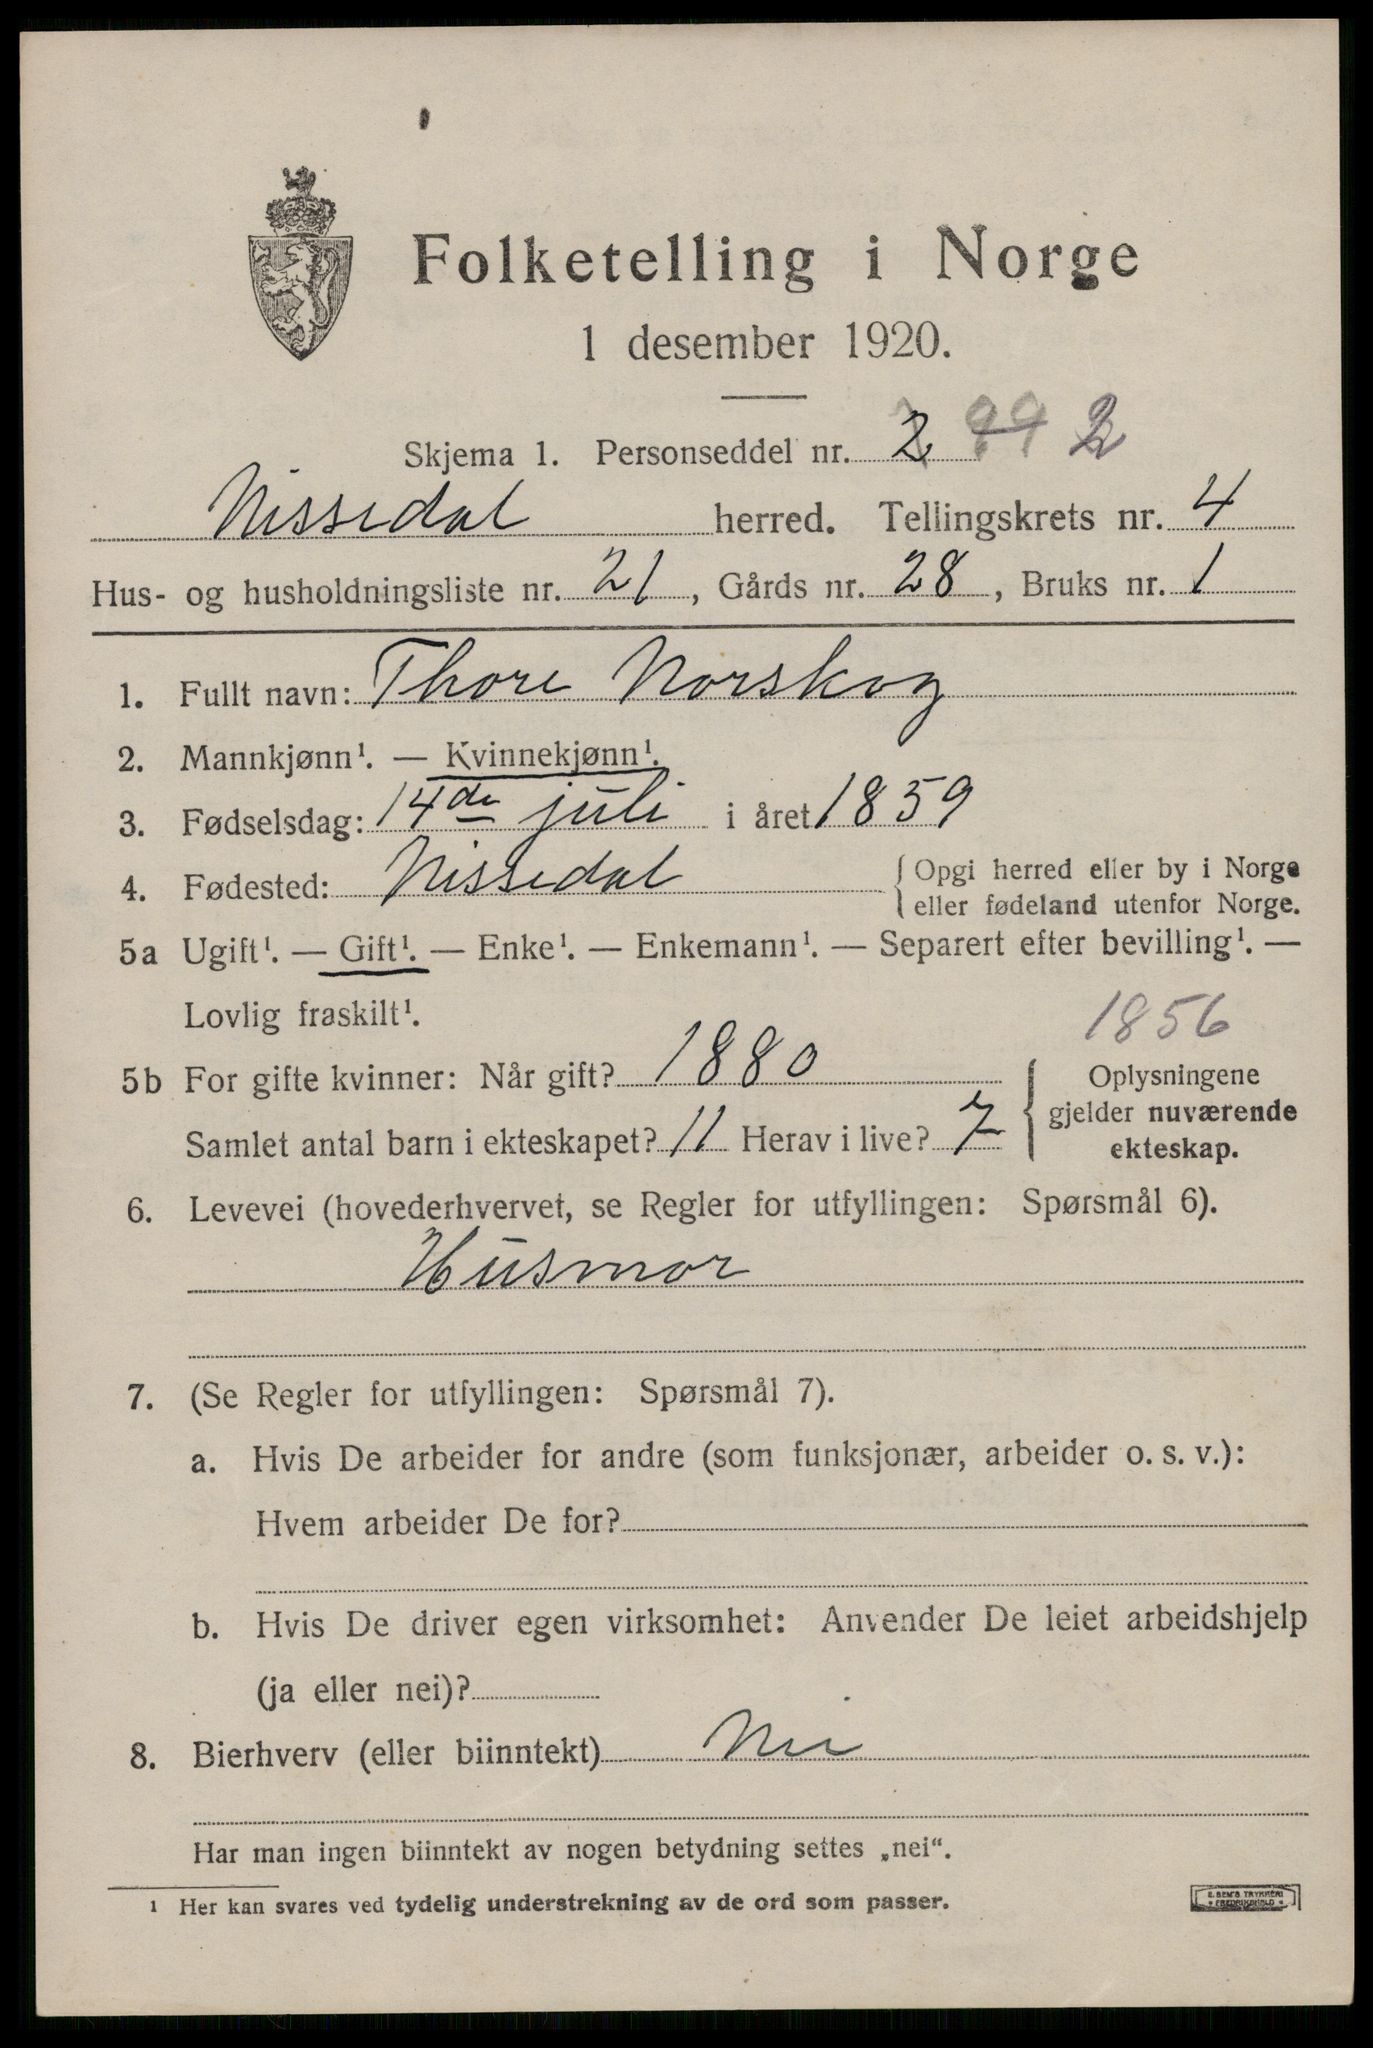 Folketelling i Norge
1 desember 1920.
Skjema 1. Personseddel nr. 2 99 2
Nissedal herred. Tellingskrets nr. 4
Hus- og husholdningsliste nr. 21, Gårds nr. 28, Bruks nr. 1
1. Fullt navn: Thore Norskog
2. Mannkjønn¹. — Kvinnekjønn¹.
3. Fødselsdag: 14de juli i året 1859
4. Fødested: Nissedal { Opgi herred eller by i Norge
eller fødeland utenfor Norge.
5a Ugift¹. — Gift¹. — Enke¹. — Enkemann¹. — Separert efter bevilling¹. —
Lovlig fraskilt¹.
1856
5b For gifte kvinner: Når gift? 1880
Samlet antal barn i ekteskapet? 11 Herav i live? 7
{ Oplysningene
gjelder nuværende
ekteskap.
6. Levevei (hovederhvervet, se Regler for utfyllingen: Spørsmål 6).
Husmor
7. (Se Regler for utfyllingen: Spørsmål 7).
a. Hvis De arbeider for andre (som funksjonær, arbeider o. s. v.):
Hvem arbeider De for?
b. Hvis De driver egen virksomhet: Anvender De leiet arbeidshjelp
(ja eller nei)?
8. Bierhverv (eller biinntekt) Nei
Har man ingen biinntekt av nogen betydning settes „nei“.
¹ Her kan svares ved tydelig understrekning av de ord som passer.
E. SEM'S TRYKKERI
FREDRIKSHALD